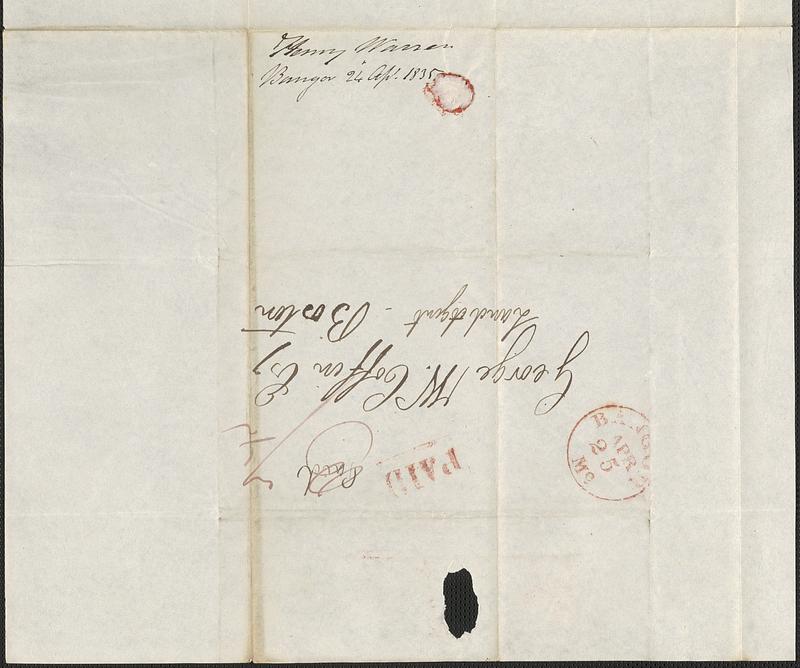 Henry Warren
Bangor 24 Apl. 1835
George W. Coffin Esq
Land Agent - Boston
Paid
PAID
BANGOR
APR
25
Me